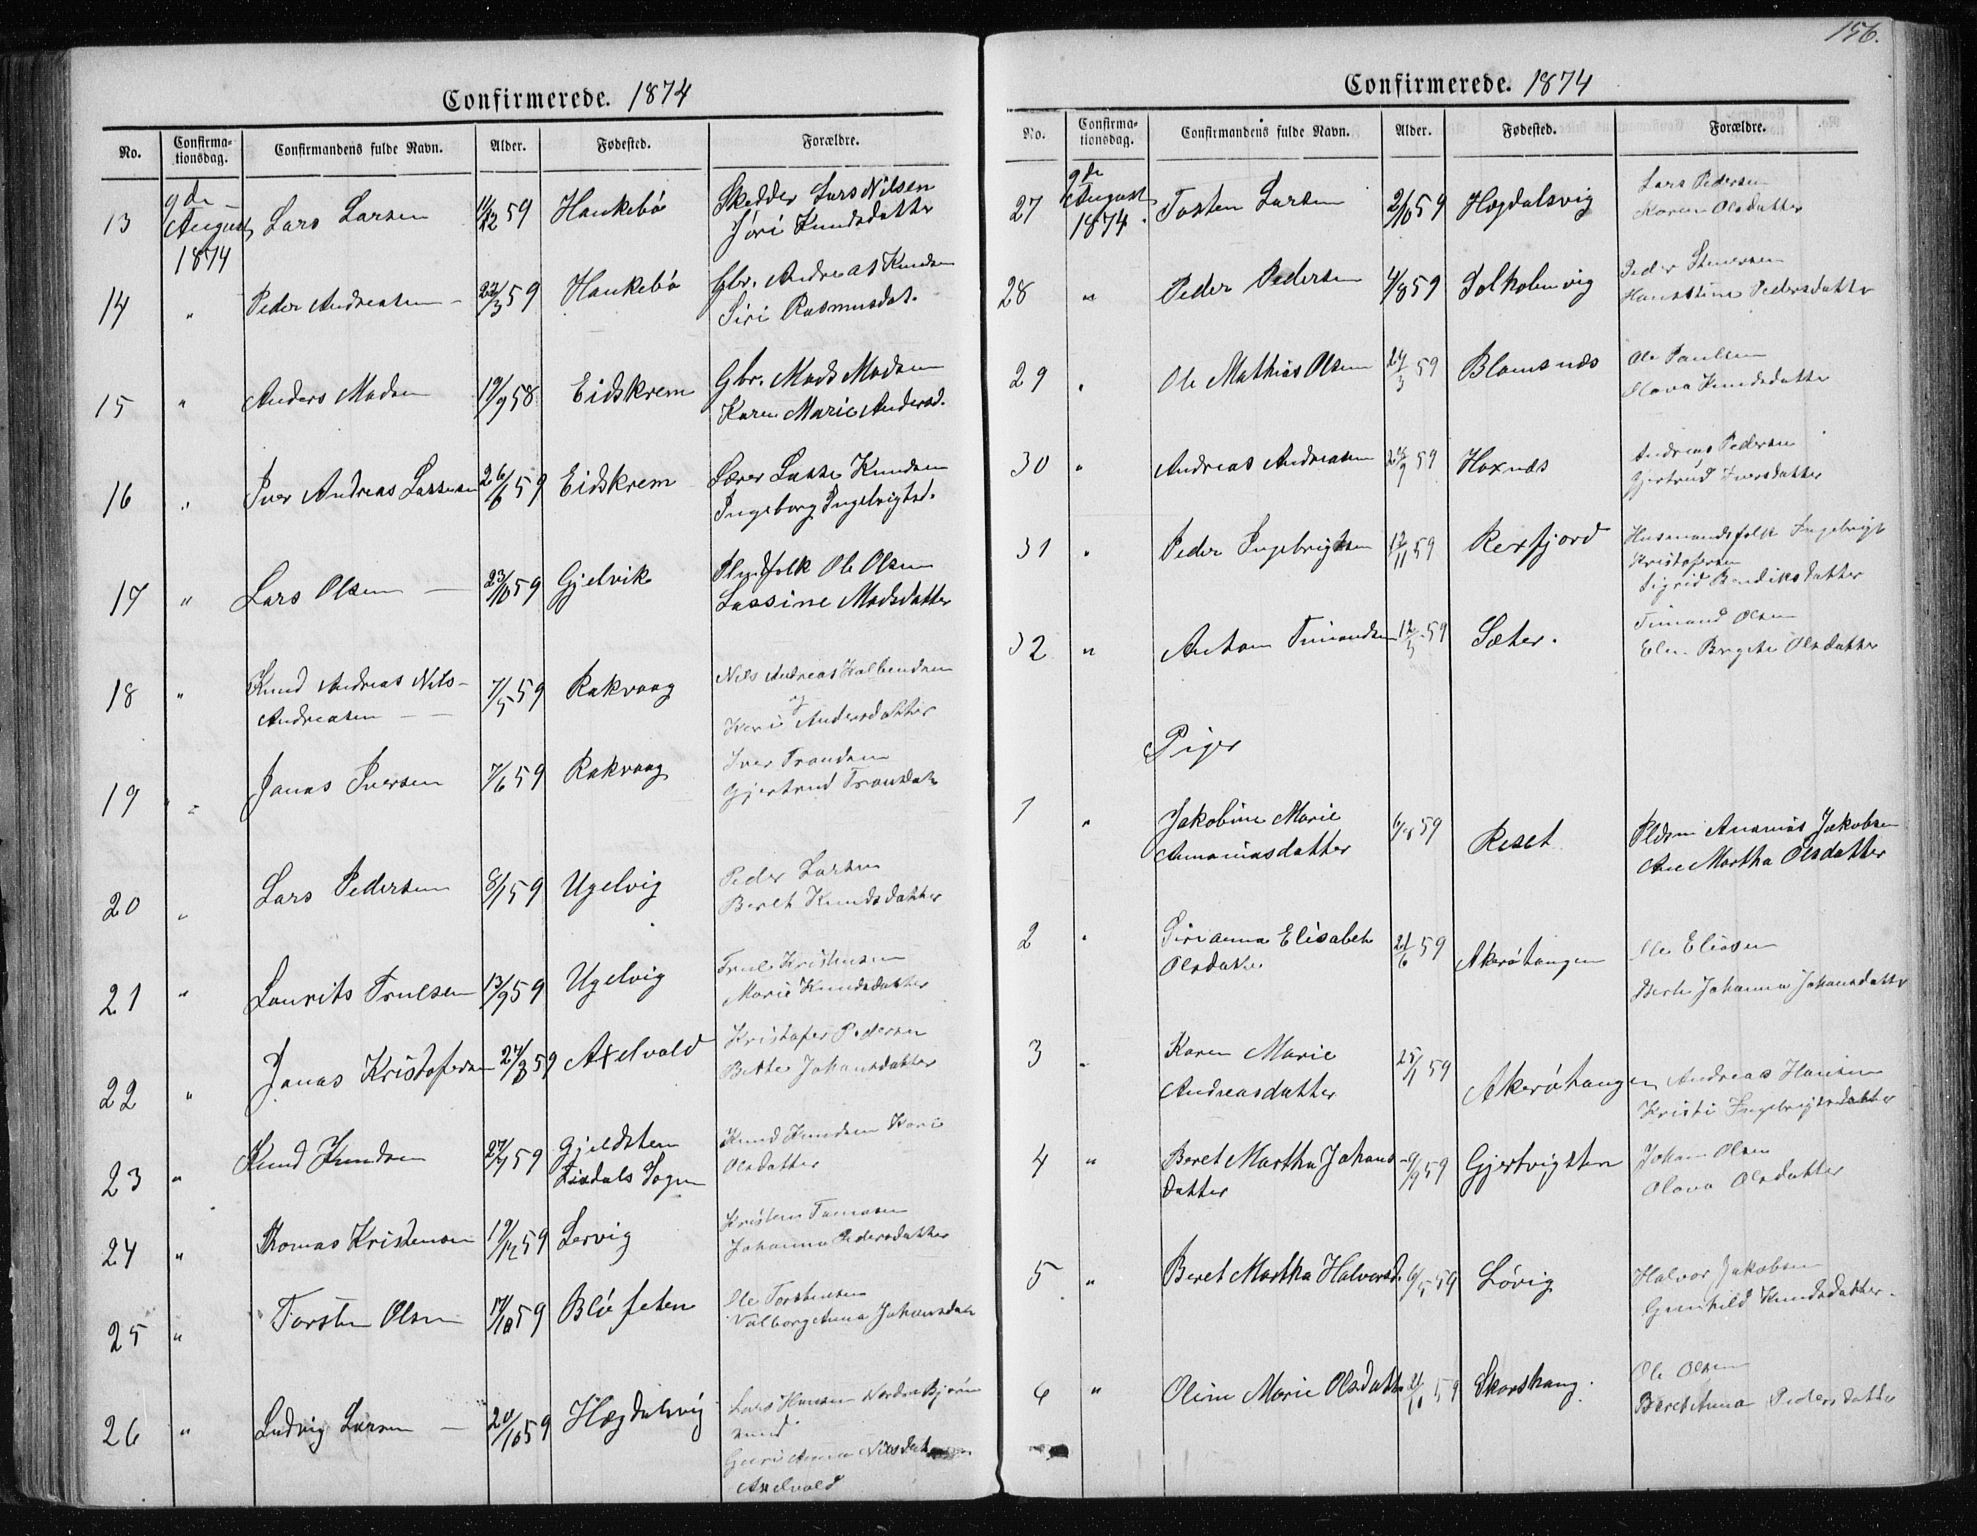 156.
Confirmerede. 1874
No. Confirma-tionsdag. Confirmandens fulde Navn. Alder. Fødested. Forældre.
13 9de August 1874 Lars Larsen 11/12 59 Haukebø Lars Nilsen
Jøri Knudsdatter
14 " Peder Andreasen 22/3 59 Haukebø Gbr. Andreas Knudsen
Siri Rasmusdat.
15 " Anders Madsen 19/9 58 Eidskrem Gbr. Mads Madsen
Karen Marie Andersd.
16 " Iver Andreas Lassesen 26/6 59 Eidskrem Lærer Lasse Knudsen
Ingeborg Ingebrigtsd.
17 " Lars Olsen 23/10 59 Gjelvik Ole Olsen
Lassine Madsdatter
18 " Knud Andreas Nils- 7/5 59 Rakvaag Nils Andreas
Andreasen og
Andersdatter
19 " Jonas Iversen 7/6 59 Rakvaag Iver Trondsen
Gjertrud
20 " Lars Pedersen 8/1 59 Ugelvig Peder Larsen
Beret Knudsdatter
21 " Laurits Trulsen 13/9 59 Ugelvig Truls Kristensen
Marie Knudsdatter
22 " Jonas Kristofersen 24/8 59 Axelvold Kristofer Pedersen
Johansdatter
23 " Knud Knudsen 27/7 59 Gjeldsten Knud Knudsen Kari
Sogn Olsdatter
24 " Thomas Kristensen 19/12 59 Lervig Kristen
Johanna Pedersdatter
25 " Torsten Olsen 17/10 59 Ole Torstensen
Valborg Anna
26 " Ludvig Larsen 20/10 59 Hægdalsvig Lars Hansen
Guri Anna Nilsdatter
Axelvold
Confirmerede. 1874
No. Confirma-tionsdag. Confirmandens fulde Navn. Alder. Fødested. Forældre.
27 9de August 1874. Tosten Larsen 2/10 59 Hægdalsvig Lars Pedersen
Karen Olsdatter
28 " Peder Pedersen 4/8 59 Peder
Pedersdatter
29 " Ole Mathias Olsen 29/3 59 Ole Paulsen
Olava Knudsdatter
30 " Andreas Andreasen 59 Hoxnæs Andreas Pedersen
Gjertrud Iversdatter
31 " Peder Ingebrigtsen 12/11 59 Rexfjord Husmandsfolk Ingebrigt
Kristofersen
Sigrid Bendiksdatter
32 " Anton Timandsen 12/5 59 Sæter. Timand Olsen
Olsdatter
Piger
1 " Jakobine Marie 59 Reset Ananias Jakobsen
Annaniasdatter Ane Martha Olsdatter
2 " Sirianna Elisabet 21/6 59 Akerøtangen Ole Eliasen
Olsdatter
Johanna Johansdatter
3 " Karen Marie 25/1 59 Akerøtangen Andreas Hansen
Andreasdatter Kristi Ingebrigtsdatter
4 " Beret Martha Johans- 9/9 59 Gjertvigsten Johan Olsen
datter Olava Olsdatter
5 " Beret Martha Halvorsd. 9/5 59 Løvig Halvor Jakobsen
Gunhild Knudsdatter.
6 " Oline Marie Olsdatter 59 Skorshaug. Ole Olsen
Beret Anna Pedersdatter